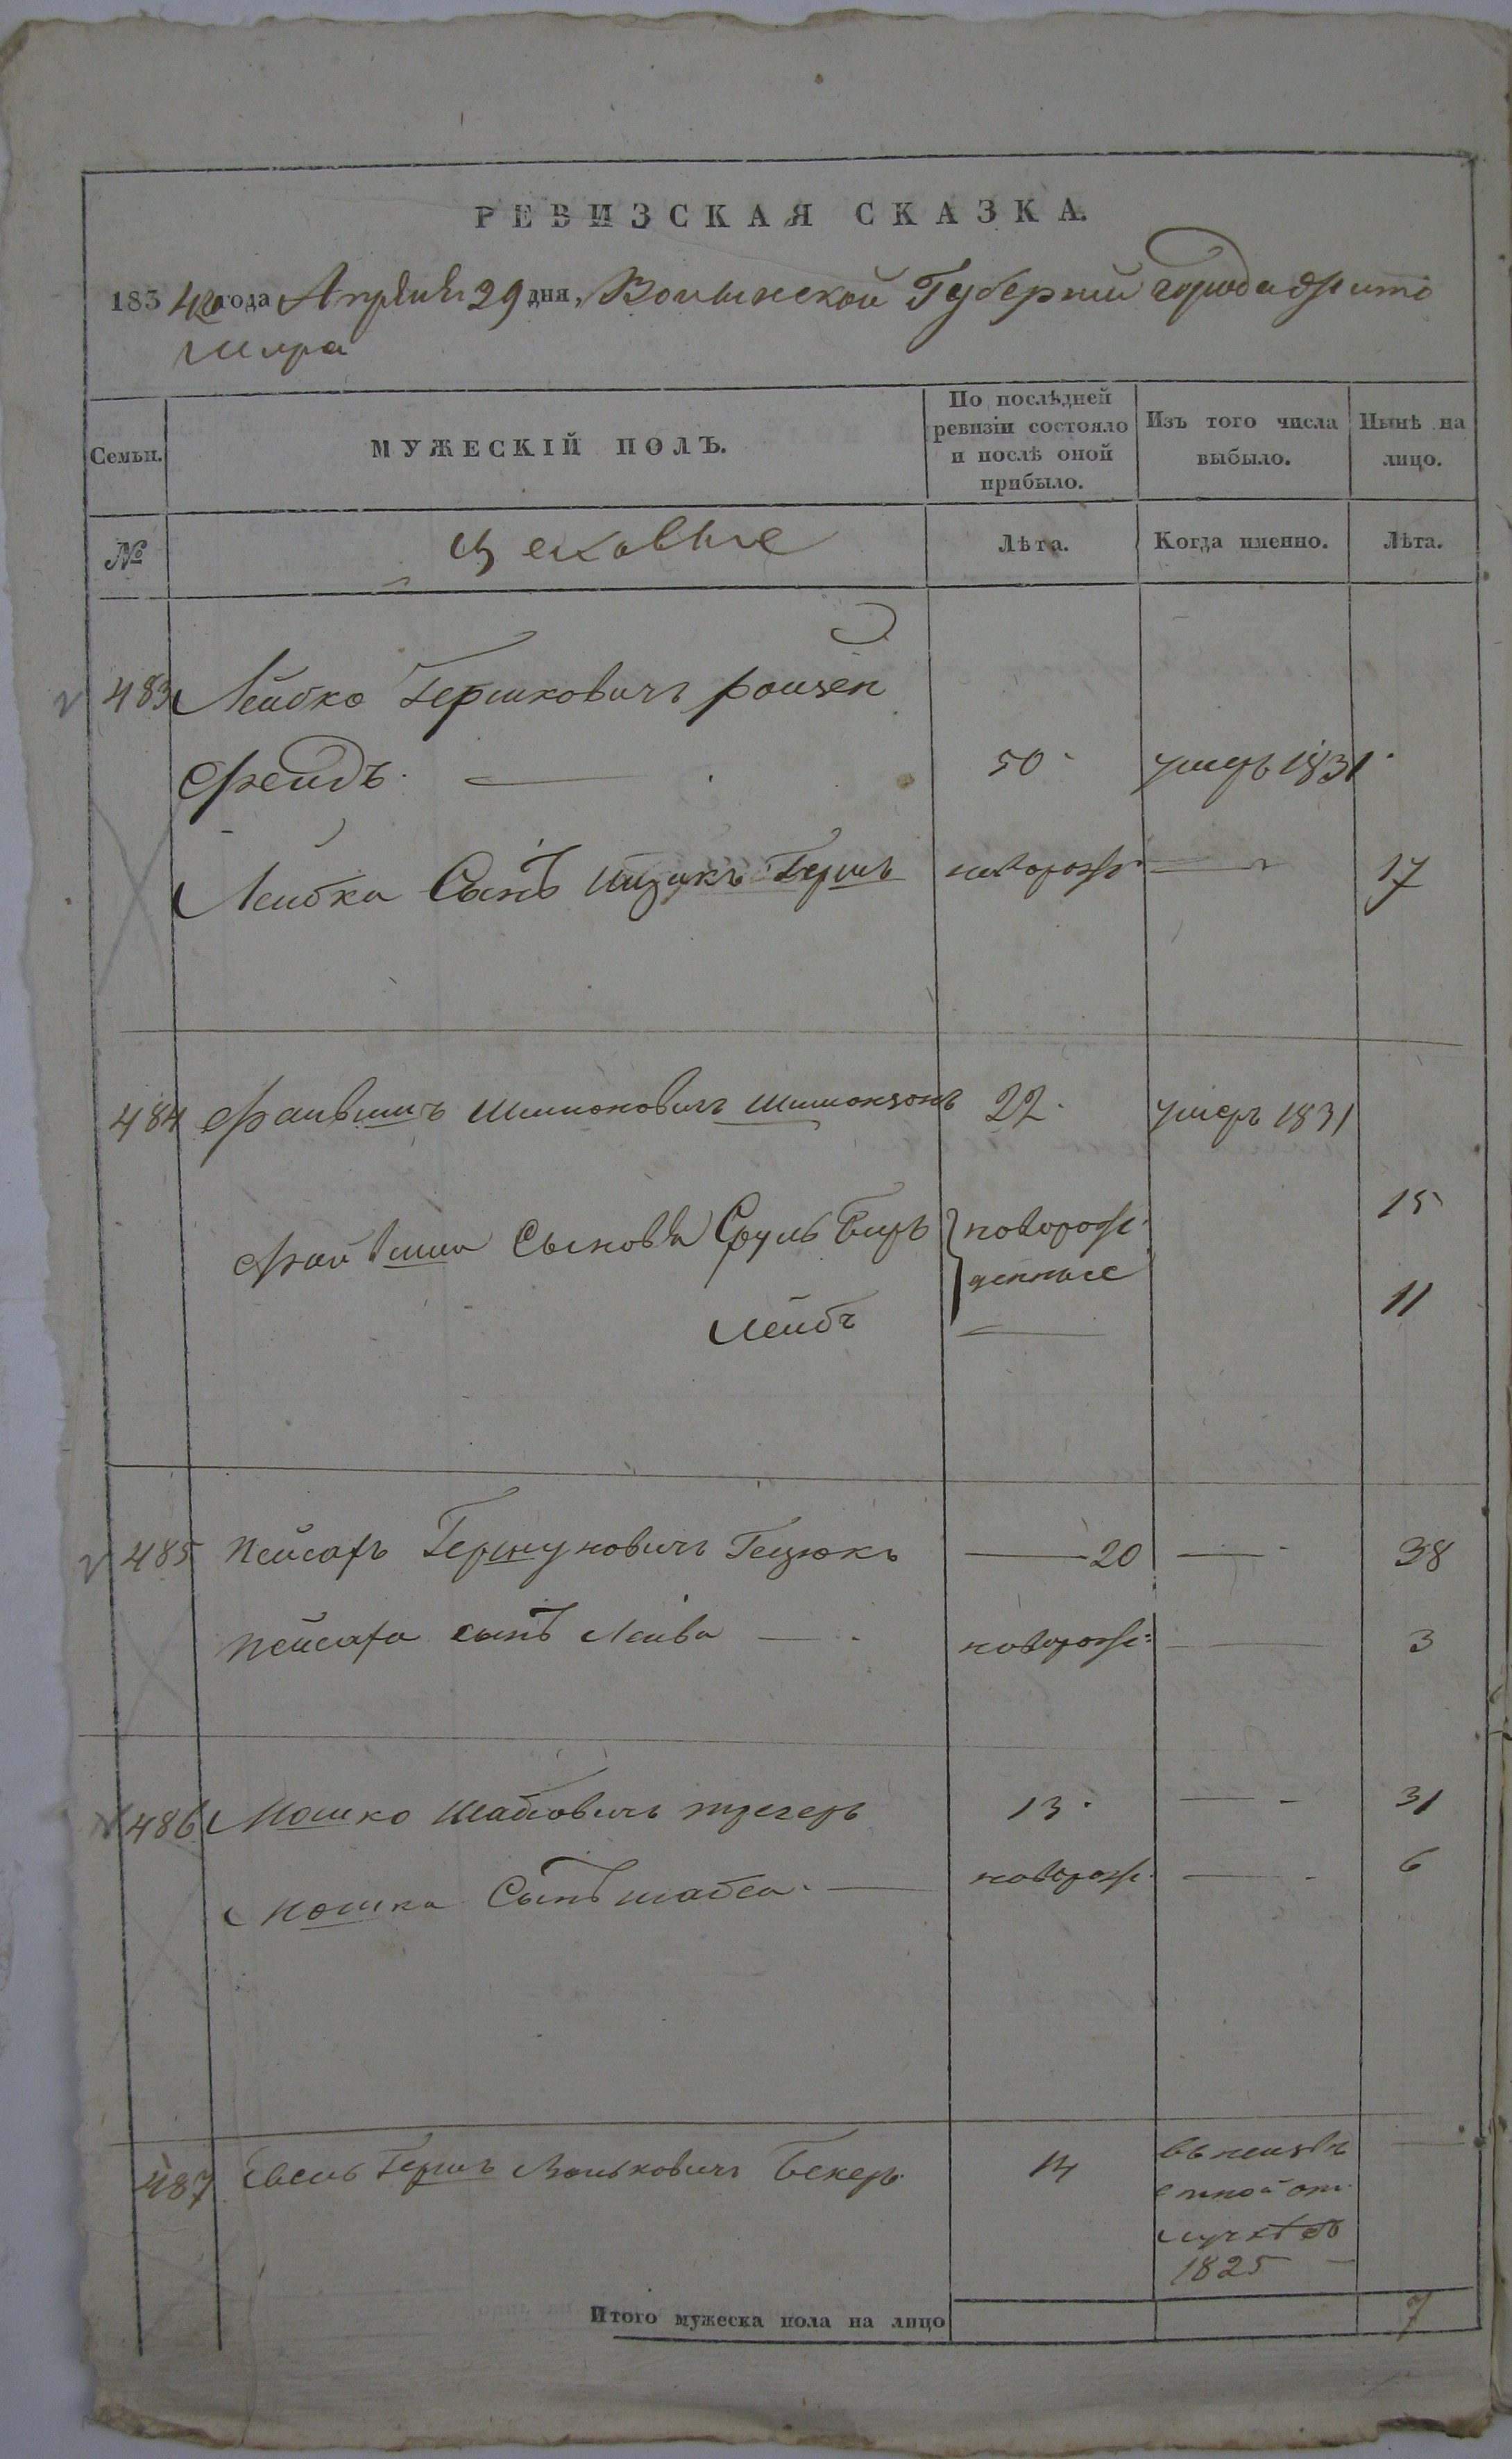 РЕВИЗСКАЯ СКАЗКА.
1834го года Апреля 29 дня, Волынской Губернии города Жито
мира
Семьи. МУЖЕСКІЙ ПОЛЪ. По послѣдней ревизіи состояло и послѣ оной прибыло. Изъ того числа выбыло. Нынѣ на лицо.
№ Цеховые Лѣта. Когда именно. Лѣта.
483 Лейбко Гершковичъ ройзен
Фрейдъ. 50 умеръ 1831
Лейбка Сынъ Ицикъ Гершъ новорож. 17
484 Файвишъ Шимоновичъ Шимонзонъ 22 умеръ 1831
Файвиша Сыновья Сруль Беръ новорож 15
денные
Лейбъ 11
485 Пейсахъ Гершуновичъ Гецюкъ 20 38
Пейсаха сынъ Лейва новорож: 3
486 Мошко Шабсовичъ трегеръ 13 31
Мошка Сынъ шабса новорож. 6
487 Евель Гершъ Волковичъ Бекеръ 14 въ неизвѣ
стной от
лучкѣ съ
1825
Итого мужеска пола на лицо 7